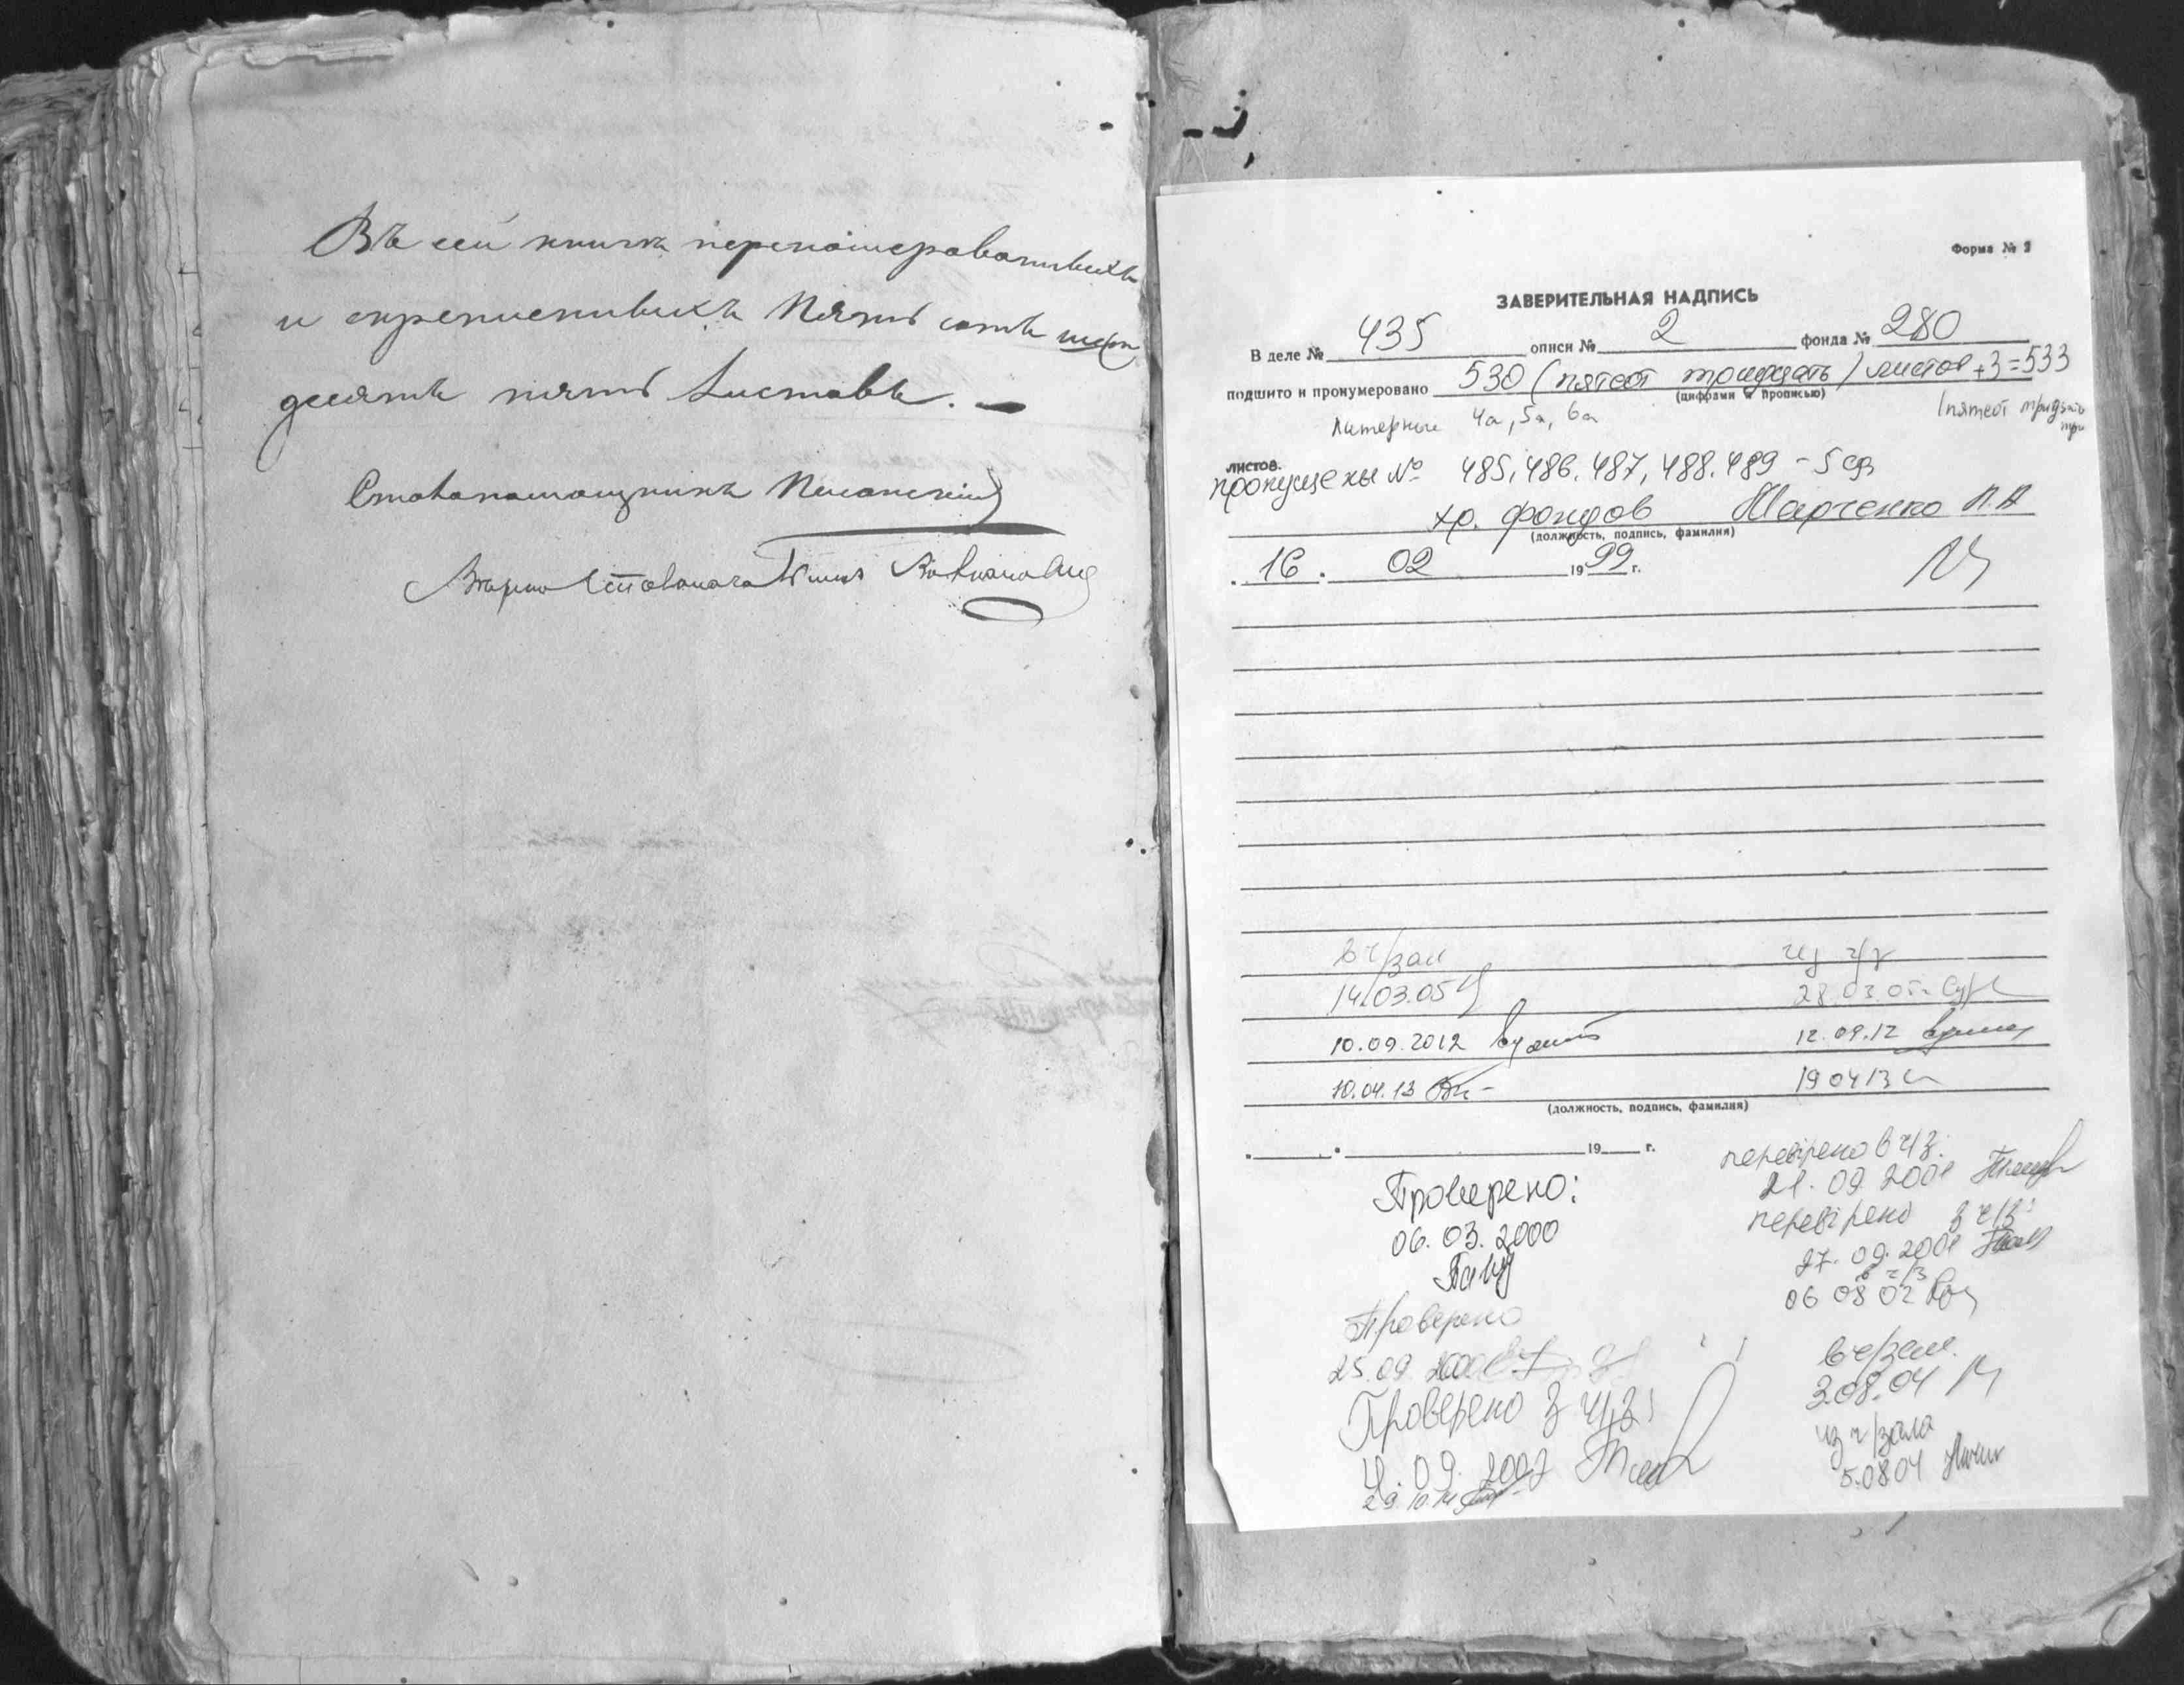 Въ сей книгѣ перенумерованныхъ
и скрепленныхъ Пять сотъ шесть
десятъ пять Листовъ.
Столопомощникъ
Форма № 3
ЗАВЕРИТЕЛЬНАЯ НАДПИСЬ
В деле № 435 описи № 2 фонда № 280
подшито и пронумеровано 530 (пятсот тридцать) листов +3=533
(цифрами и прописью)
(пятсот тридцать
три
Литерные 4а, 5а, 6а
листов.
пропущены № 485, 486. 487, 488. 489 - 5 ед
хр. фондов Марченко Л.А
(должность, подпись, фамилия)
16. 02 1999 г.
в ч/зал из ч/з
14.03.05 28.03.05
10.09.2012 12.09.12
10.04.13 19 04 13
(должность, подпись, фамилия)
19 г.
Проверено:
06. 03. 2000
Проверено
25.09. 2000
Проверено з ч/з
29.10.14
перевірено в ч/з.
21. 09 2001
перевірено з ч/з
27. 09. 2001
в ч/з
06 08 02
в ч/зал.
3.08.04
из ч/зала
5.08 04